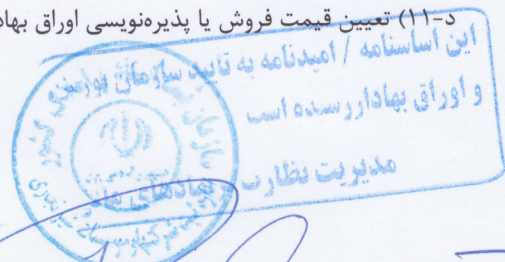 د-۱۱) تعیین قیمت فروش یا پذیره‌نویسی اوراق بهاد
این اساسنامه / امیدنامه به تایید سازمان بورس
و اوراق بهادار رسیده است
مدیریت نظارت بر نهادهای مالی